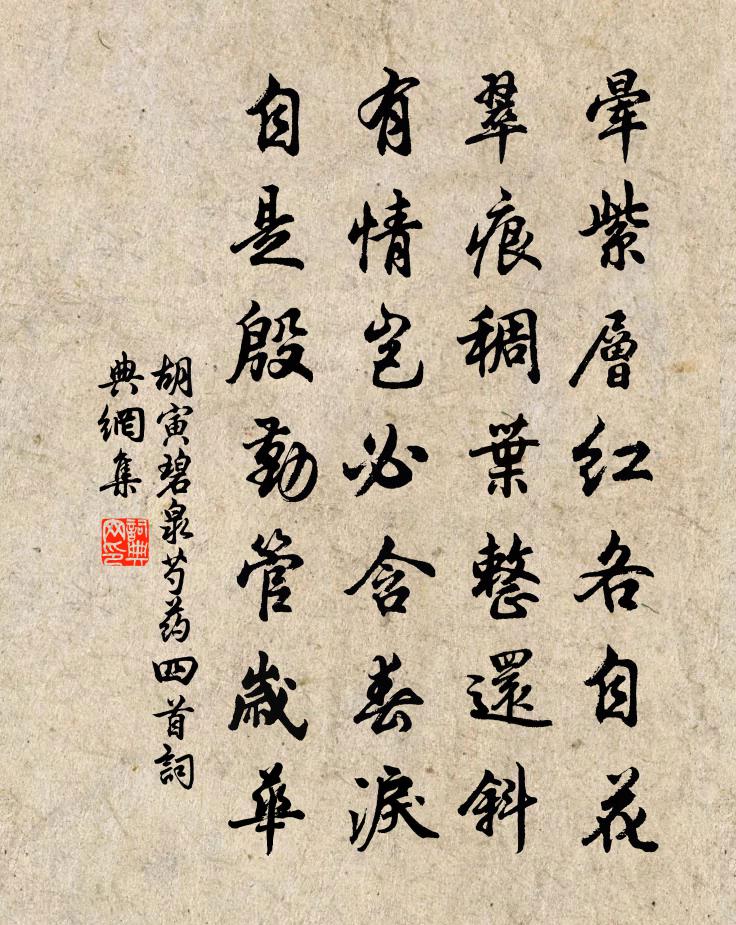 暈紫層紅各自花
翠痕稠葉整還斜
有情豈必含春淚
自是殷勤管歲華
胡寅碧泉芍药四首詞
典網集
詞典
网印